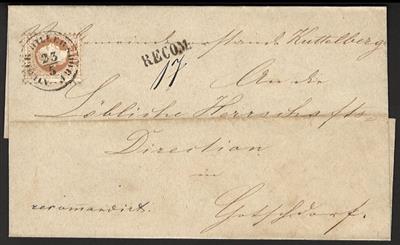 Vom Gemeindevorstande Kuttelberg
RECOM.
23
5
17
An die
Löbliche Herrschafts-
Direction
in
recommandirt.
Gotschdorf.